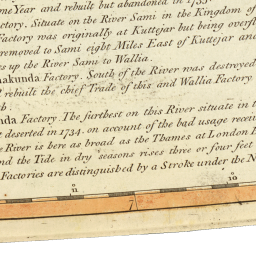 me Year and rebuilt but abandoned in 1733
ctory. Situate on the River Sami in the Kingdom of
Factory was originally at Kuttejar but being overfl
removed to Sami eight Miles East of Kuttejar and
s up the River Sami to Wallia.
nakunda Factory. South of the River was destroyed
d rebuilt the chief Trade of this and Wallia Factory
h.
nda Factory. The furthest on this River situate in t
t deserted in 1734. on account of the bad usage receiv
e River is here as broad as the Thames at London B
nd the Tide in dry seasons rises three or four feet
Factories are distinguished by a Stroke under the N
11 10
7